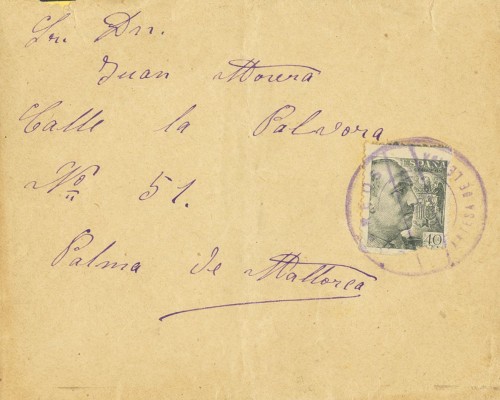 Sr. Dn.
Juan Morera
Calle la Palvora
Nº 51.
Palma de Mallorca
ESPAÑA
40